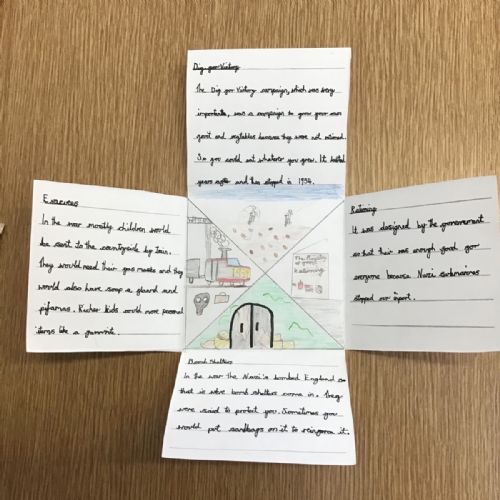 Dig for Victory
The Dig for Victory campaign, which was very
important, was a campaign to grow your own
food and vegtables because they were not rationed.
So you could eat whatever you grew. It lasted
years and stopped in 1954.
Evacuees
In the war mostly children would
be sent to the countryside by train.
They would need their gas masks and they
would also have soap a flannel and
pijamas. Richer kids could more personal
items like a
Rationing
It was designed by the government
so that their was enough food for
everyone because Nazi submarines
stopped our import.
The Ministry
of food
Rationing
Bomb Shelters
In the war the Nazi's bombed England so
that is were bomb shelters come in. They
were used to protect you. Sometimes you
would put sandbags on it to reinforce it.